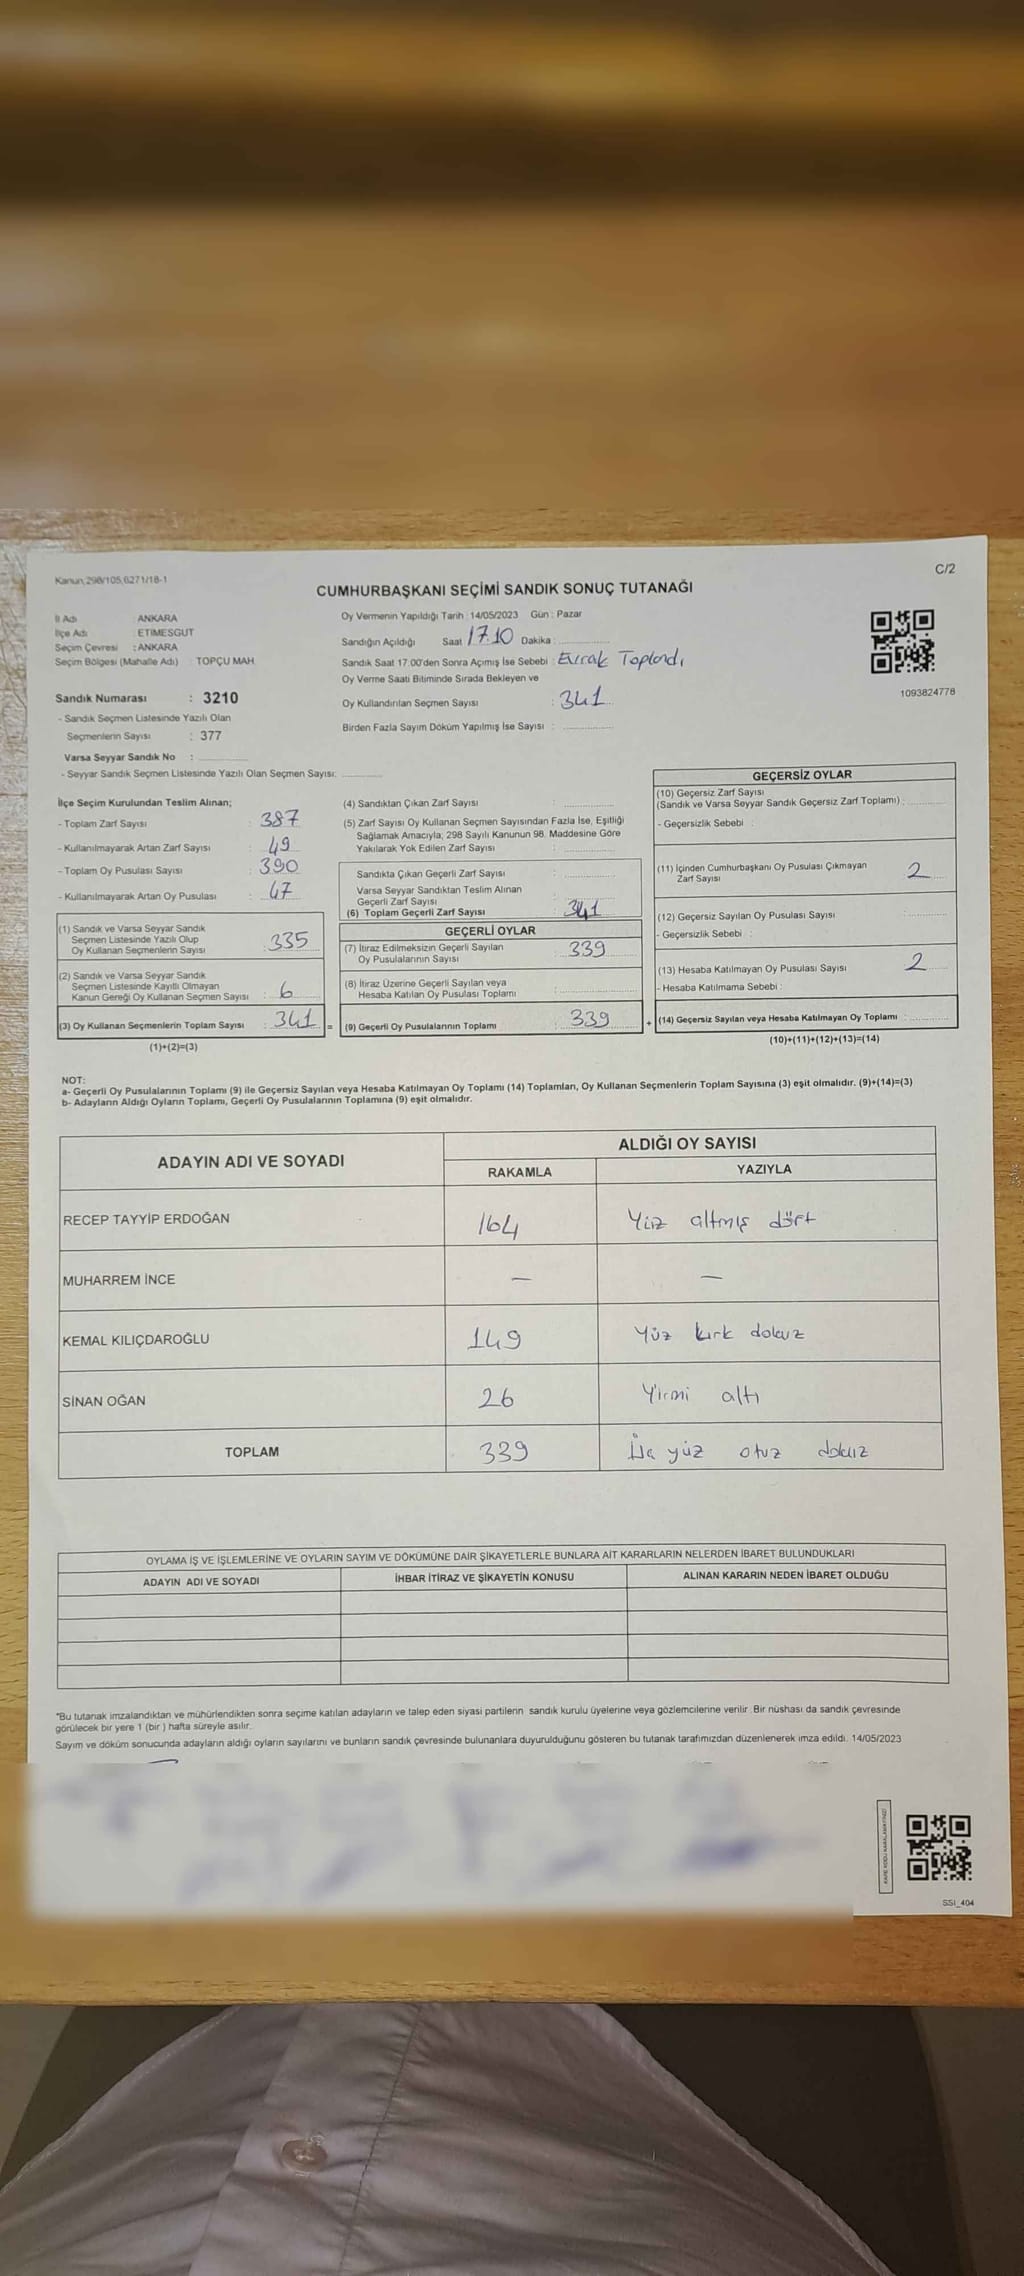 Kanun;298/105,6271/18-1
C/2
CUMHURBAŞKANI SEÇİMİ SANDIK SONUÇ TUTANAĞI
İl Adı : ANKARA
İlçe Adı : ETİMESGUT
Seçim Çevresi : ANKARA
Seçim Bölgesi (Mahalle Adı) : TOPÇU MAH.
Oy Vermenin Yapıldığı Tarih :14/05/2023 Gün : Pazar
Sandığın Açıldığı Saat 17.10 Dakika :
Sandık Saat 17.00'den Sonra Açımış İse Sebebi : Evrak Toplandı
Oy Verme Saati Bitiminde Sırada Bekleyen ve
Oy Kullandırılan Seçmen Sayısı : 341
Birden Fazla Sayım Döküm Yapılmış İse Sayısı :
1093824778
Sandık Numarası : 3210
- Sandık Seçmen Listesinde Yazılı Olan
Seçmenlerin Sayısı : 377
Varsa Seyyar Sandık No :
- Seyyar Sandık Seçmen Listesinde Yazılı Olan Seçmen Sayısı:
İlçe Seçim Kurulundan Teslim Alınan;
- Toplam Zarf Sayısı : 387
- Kullanılmayarak Artan Zarf Sayısı : 49
- Toplam Oy Pusulası Sayısı : 390
- Kullanılmayarak Artan Oy Pusulası : 47
(1) Sandık ve Varsa Seyyar Sandık
Seçmen Listesinde Yazılı Olup
Oy Kullanan Seçmenlerin Sayısı : 335
(2) Sandık ve Varsa Seyyar Sandık
Seçmen Listesinde Kayıtlı Olmayan
Kanun Gereği Oy Kullanan Seçmen Sayısı : 6
(3) Oy Kullanan Seçmenlerin Toplam Sayısı : 341 =
(1)+(2)=(3)
(4) Sandıktan Çıkan Zarf Sayısı :
(5) Zarf Sayısı Oy Kullanan Seçmen Sayısından Fazla İse, Eşitliği
Sağlamak Amacıyla; 298 Sayılı Kanunun 98. Maddesine Göre
Yakılarak Yok Edilen Zarf Sayısı :
Sandıkta Çıkan Geçerli Zarf Sayısı :
Varsa Seyyar Sandıktan Teslim Alınan
Geçerli Zarf Sayısı :
(6) Toplam Geçerli Zarf Sayısı 341
GEÇERLİ OYLAR
(7) İtiraz Edilmeksizin Geçerli Sayılan
Oy Pusulalarının Sayısı : 339
(8) İtiraz Üzerine Geçerli Sayılan veya
Hesaba Katılan Oy Pusulası Toplamı :
(9) Geçerli Oy Pusulalarının Toplamı : 339 +
GEÇERSİZ OYLAR
(10) Geçersiz Zarf Sayısı
(Sandık ve Varsa Seyyar Sandık Geçersiz Zarf Toplamı) :
- Geçersizlik Sebebi :
(11) İçinden Cumhurbaşkanı Oy Pusulası Çıkmayan
Zarf Sayısı 2
(12) Geçersiz Sayılan Oy Pusulası Sayısı :
- Geçersizlik Sebebi :
(13) Hesaba Katılmayan Oy Pusulası Sayısı : 2
- Hesaba Katılmama Sebebi :
(14) Geçersiz Sayılan veya Hesaba Katılmayan Oy Toplamı :
(10)+(11)+(12)+(13)=(14)
NOT:
a- Geçerli Oy Pusulalarının Toplamı (9) ile Geçersiz Sayılan veya Hesaba Katılmayan Oy Toplamı (14) Toplamları, Oy Kullanan Seçmenlerin Toplam Sayısına (3) eşit olmalıdır. (9)+(14)=(3)
b- Adayların Aldığı Oyların Toplamı, Geçerli Oy Pusulalarının Toplamına (9) eşit olmalıdır.
ADAYIN ADI VE SOYADI
ALDIĞI OY SAYISI
RAKAMLA YAZIYLA
RECEP TAYYİP ERDOĞAN 164 Yüz altmış dört
MUHARREM İNCE — —
KEMAL KILIÇDAROĞLU 149 Yüz kırk dokuz
SİNAN OĞAN 26 Yirmi altı
TOPLAM 339 Üç yüz otuz dokuz
OYLAMA İŞ VE İŞLEMLERİNE VE OYLARIN SAYIM VE DÖKÜMÜNE DAİR ŞİKAYETLERLE BUNLARA AİT KARARLARIN NELERDEN İBARET BULUNDUKLARI
ADAYIN ADI VE SOYADI İHBAR İTİRAZ VE ŞİKAYETİN KONUSU ALINAN KARARIN NEDEN İBARET OLDUĞU
"Bu tutanak imzalandıktan ve mühürlendikten sonra seçime katılan adayların ve talep eden siyasi partilerin sandık kurulu üyelerine veya gözlemcilerine verilir. Bir nüshası da sandık çevresinde
görülecek bir yere 1 (bir ) hafta süreyle asılır.
Sayım ve döküm sonucunda adayların aldığı oyların sayılarını ve bunların sandık çevresinde bulunanlara duyurulduğunu gösteren bu tutanak tarafımızdan düzenlenerek imza edildi. 14/05/2023
SSI_404